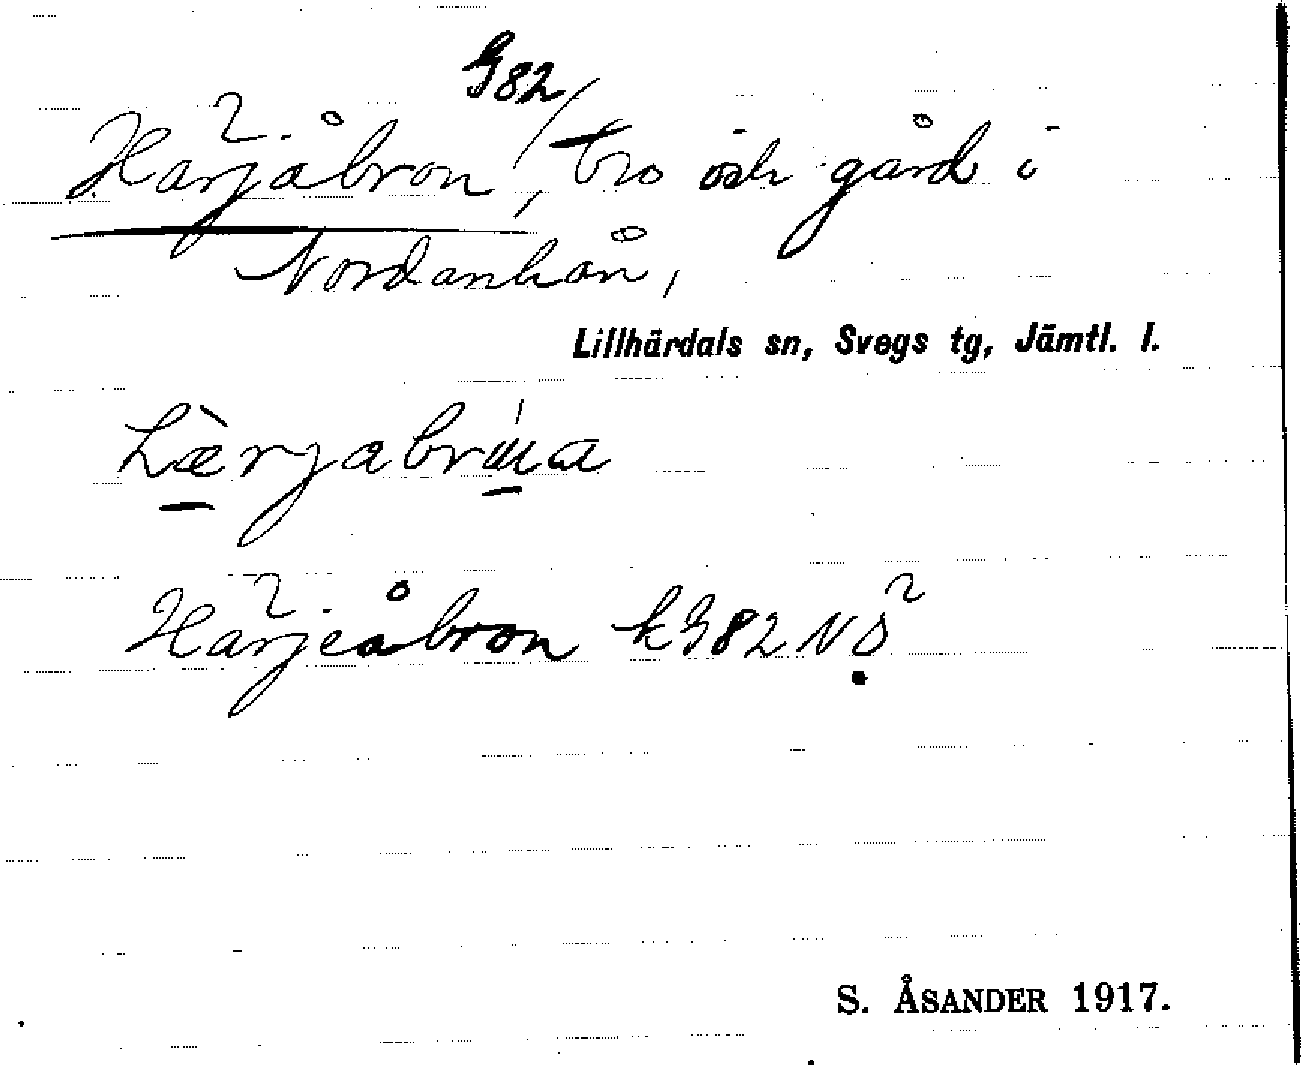 G82
Härjåbron, bro och gård i
Nordanhån,
Lillhärdals sn, Svegs tg, Jämtl. l.
Härjeåbron k G82 NO
S. ÅSANDER 1917.